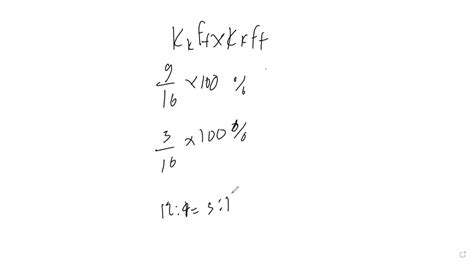 KkFf x KkFf
9/16 × 100 %
3/16 × 100 %
12:4 = 3:1